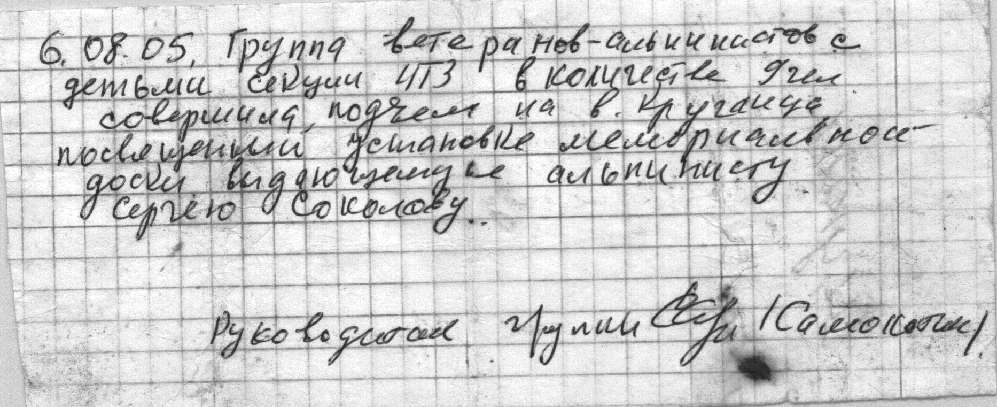 6.08.05. Группа ветеранов-альпинистов с
детьми секции ЧТЗ в количестве 9 чел
совершила подъем на в. Круглица,
посвященный установке мемориальной
доски выдающемуся альпинисту
Сергею Соколову..
Руководитель группы /